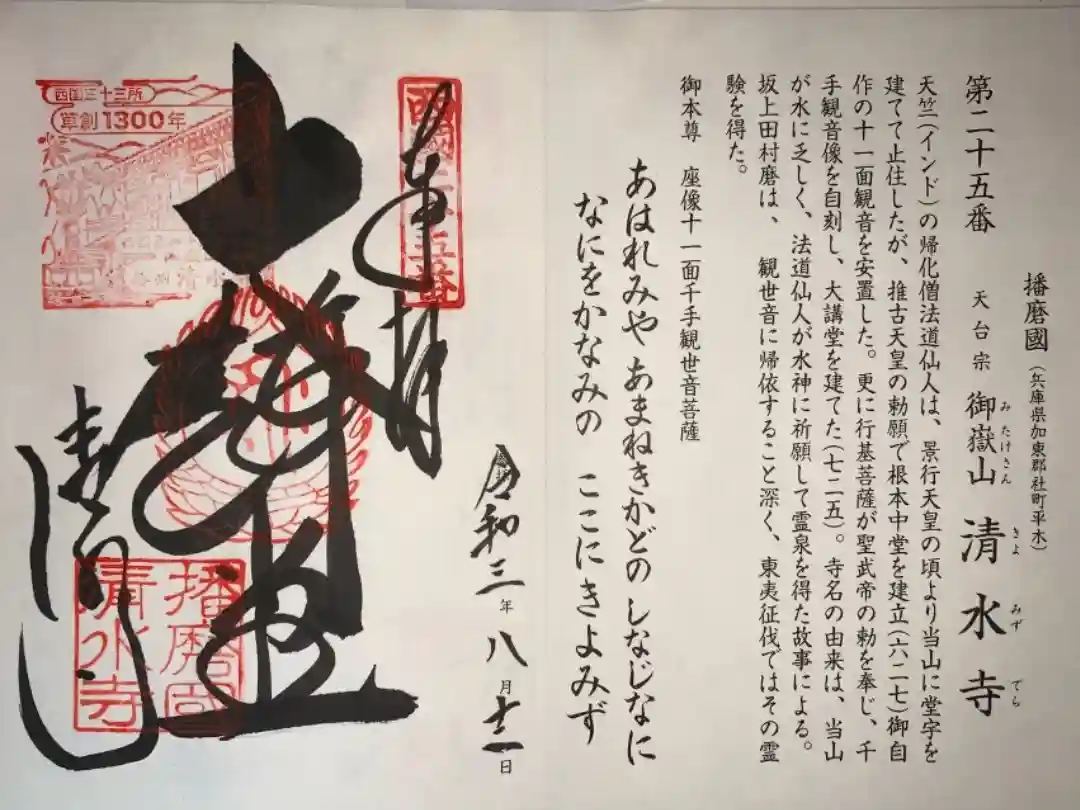 播磨國(兵庫県加東郡社町平木)
第二十五番 天台宗 御嶽山 清水寺
みたけさん きよ みず でら
天竺(インド)の帰化僧法道仙人は、景行天皇の頃より当山に堂宇を
建てて止住したが、推古天皇の勅願で根本中堂を建立(六二七)御自
作の十一面観音を安置した。更に行基菩薩が聖武帝の勅を奉じ、千
手観音像を自刻し、大講堂を建てた(七二五)。寺名の由来は、当山
が水に乏しく、法道仙人が水神に祈願して霊泉を得た故事による。
坂上田村磨は、観世音に帰依すること深く、東夷征伐ではその霊
験を得た。
御本尊 座像十一面千手観世音菩薩
あはれみや あまねきかどの しなじなに
なにをかなみの ここにきよみず
令和三年八月 日
奉拝
西国二十五番
西国三十三所
草創1300年
清水寺
播磨国
清水寺